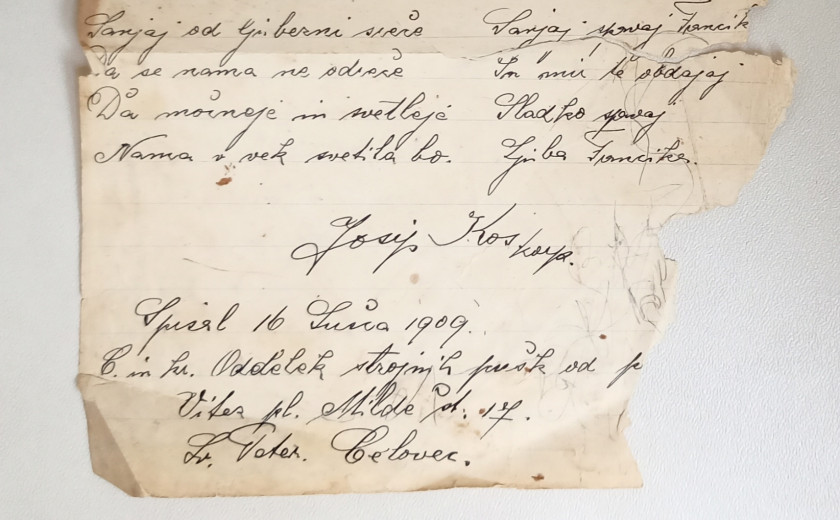 Sanjaj od ljubezni sreče
Sanjaj spavaj Francik
Da se nama ne odreče
In mir te obdajaj
Da močneje in svetleje
Sladko spavaj
Nama v vek svetila bo.
Ljuba Francika.
Josip Kos korp.
Spisal 16 Sušca 1909.
C. in kr. Oddelek strojnih pušk od p
Vitez pl. Milde št. 17.
Sv. Peter. Celovec.